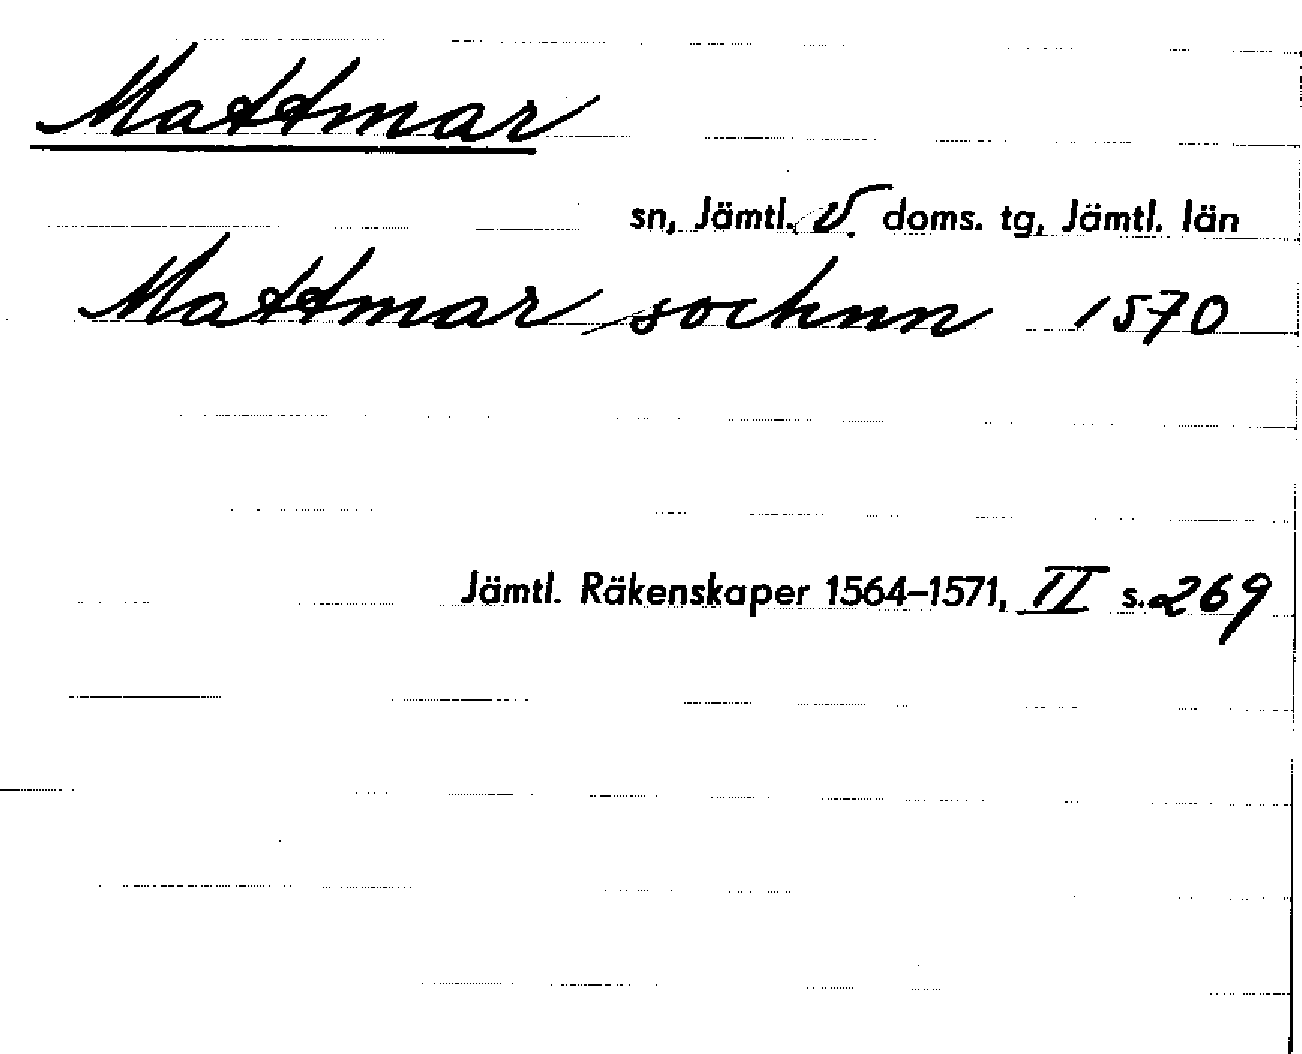 Mattmar
sn, Jämtl. V. doms. tg, Jämtl. län
Mattmar sochnn 1570
Jämtl. Räkenskaper 1564–1571, II s. 269